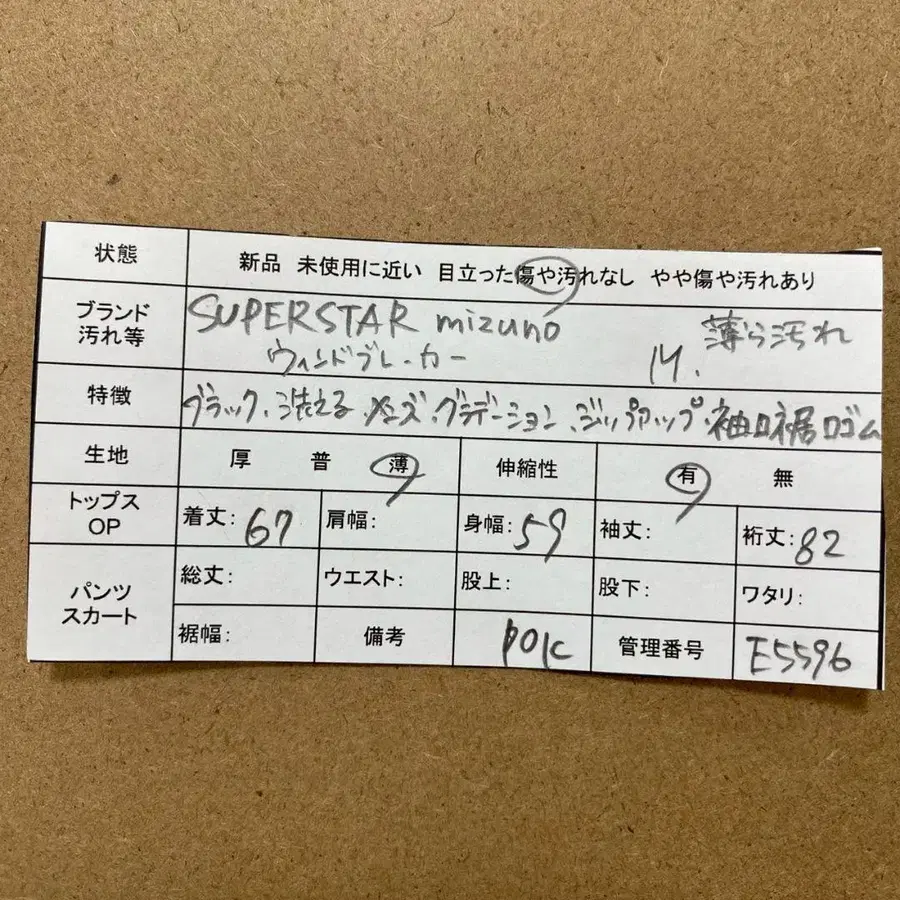 状態 新品 未使用に近い 目立った傷や汚れなし やや傷や汚れあり
ブランド 汚れ等 SUPERSTAR mizuno 薄ら汚れ
ウィンドブレーカー M.
特徴 ブラック、洗える、メンズ、グラデーション、ジップアップ、袖口裾口ゴム
生地 厚 普 薄 伸縮性 有 無
トップス OP 着丈: 67 肩幅: 身幅: 59 袖丈: 裄丈: 82
パンツ スカート 総丈: ウエスト: 股上: 股下: ワタリ:
裾幅: 備考 管理番号 E5596